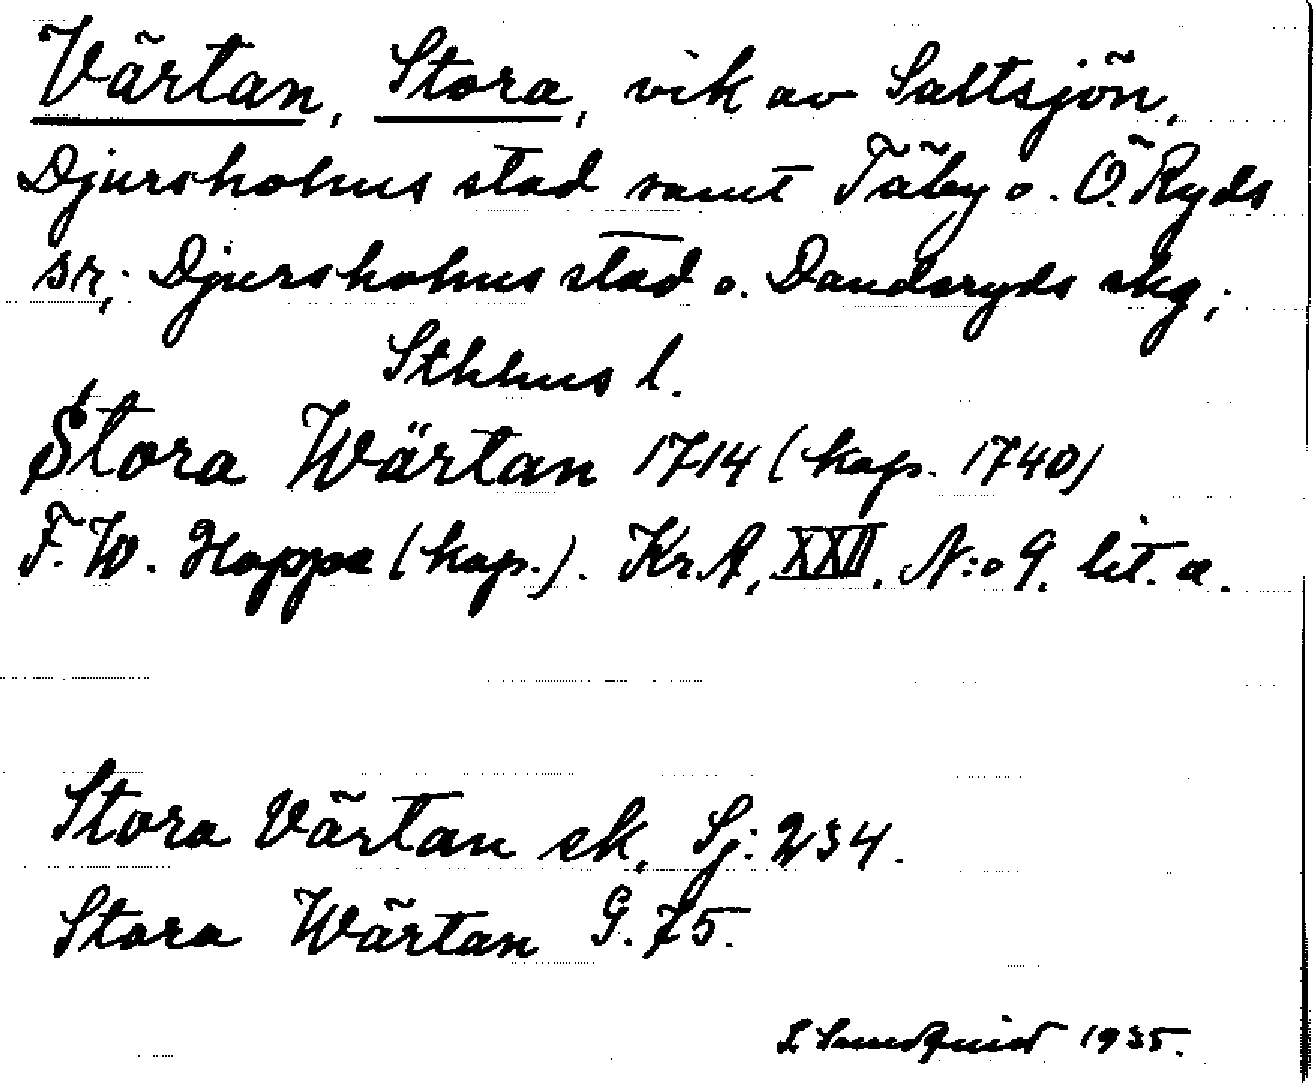 Värtan, Stora, vik av Saltsjön,
Djursholms stad samt Täby o. Ö. Ryds
sr; Djursholms stad o. Danderyds skg;
Sthlms l.
Stora Wärtan 1714 (kop. 1740)
F. W. Hoppe (kop.). Kr.A, XXII. N:o 9. lit. a.
Stora Värtan ek, Sj: 234.
Stora Wärtan G. 75.
1935.